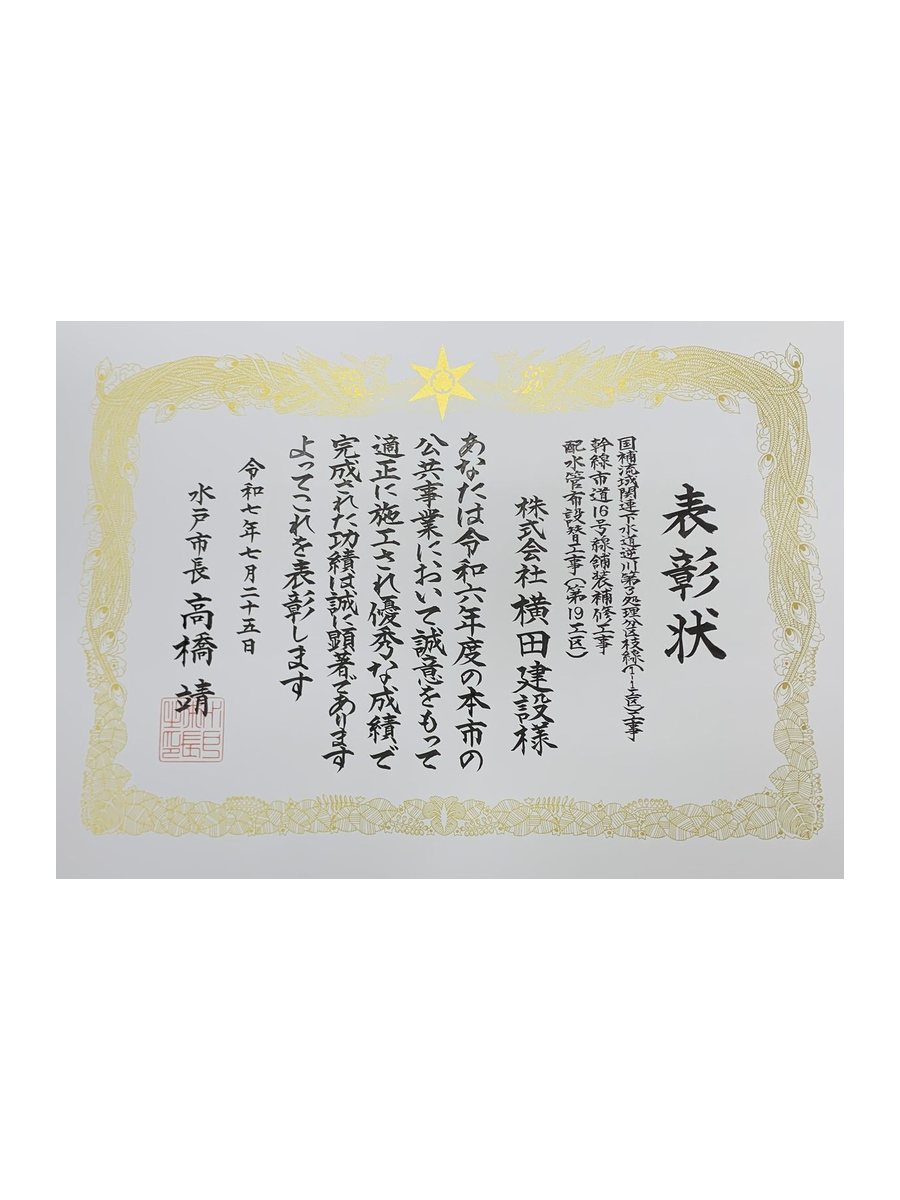 表彰状
国補流域関連下水道逆川第3処理分区枝線(1-1工区)工事
幹線市道16号線舗装補修工事
配水管布設替工事(第19工区)
株式会社 横田建設様
あなたは令和六年度の本市の
公共事業において誠意をもって
適正に施工され優秀な成績で
完成された功績は誠に顕著であります
よってこれを表彰します
令和七年七月二十五日
水戸市長 高橋 靖